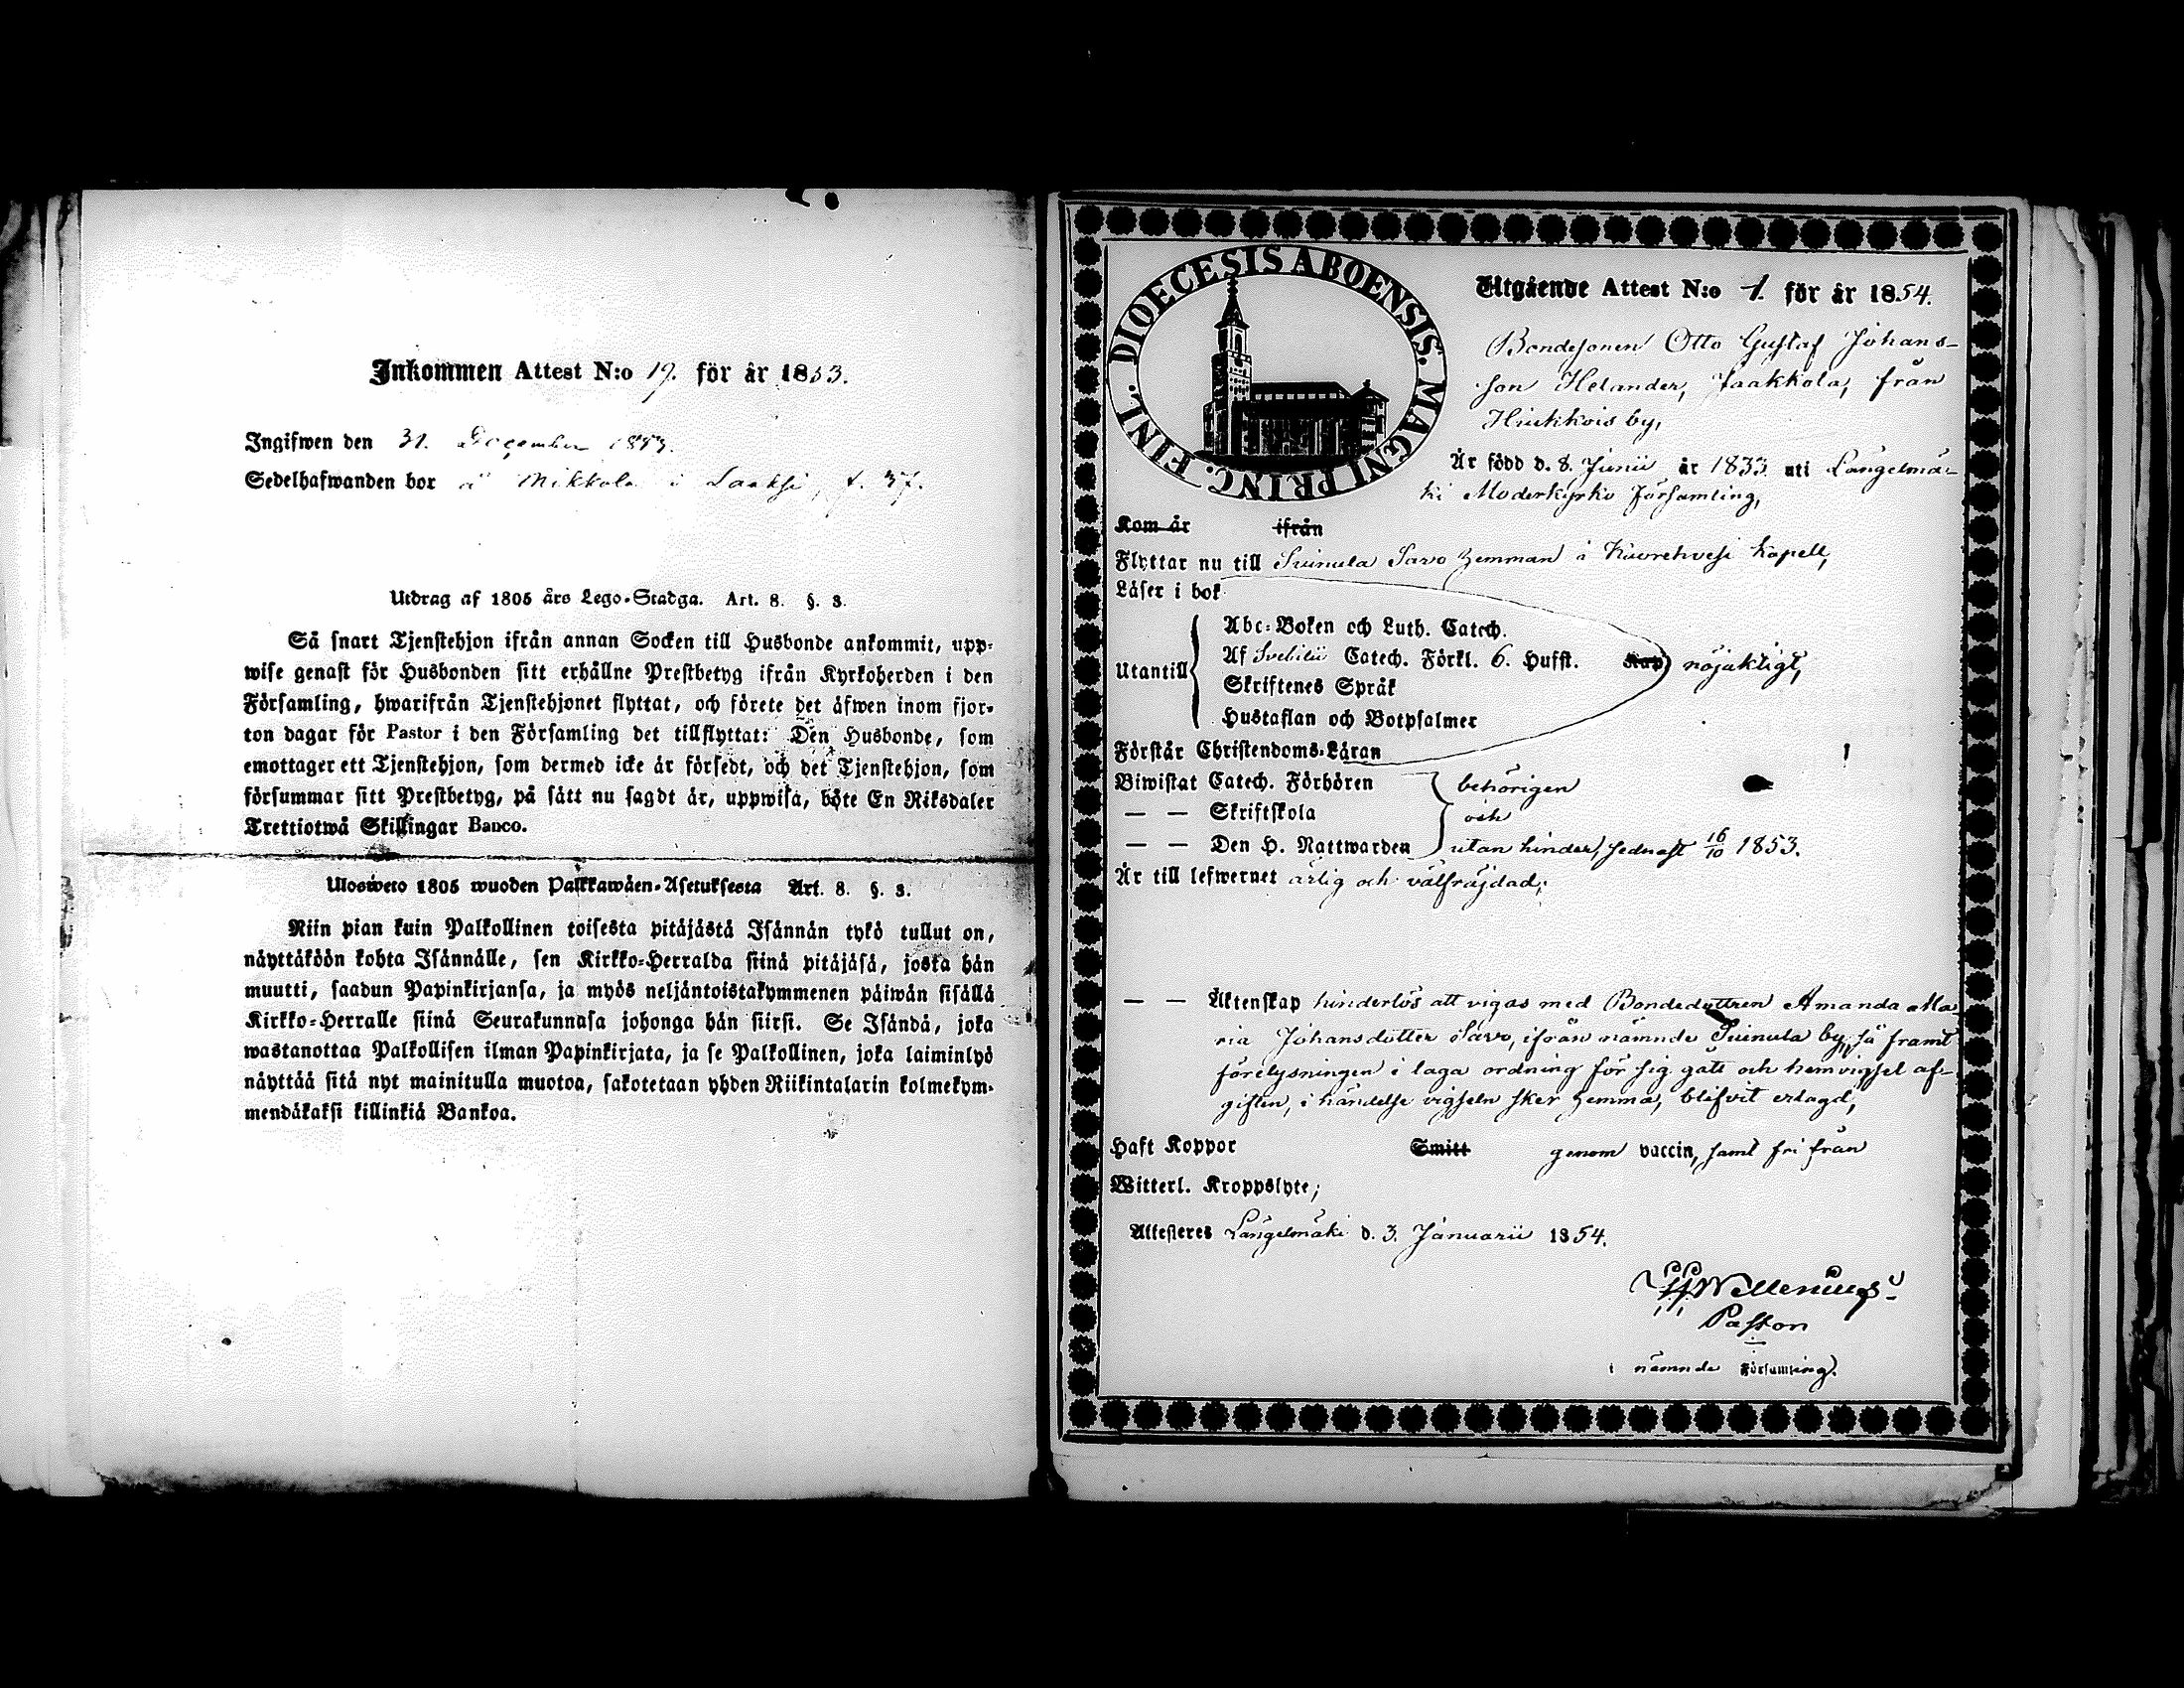 Inkommen Attest N:o 19. för år 1853.
Ingifwen den 31. December 1853.
Sedelhafwanden bor å Mikkola i Laaksi, f. 37.
Utdrag af 1805 års Lego-Stadga. Art. 8. §. 3.
Så snart Tjenstehjon ifrån annan Socken till Husbonde ankommit, upp-
wise genast för Husbonden sitt erhållne Prestbetyg ifrån Kyrkoherden i den
Församling, hwarifrån Tjenstehjonet flyttat, och förete det äfwen inom fjor-
ton dagar för Pastor i den Församling det tillflyttat: Den Husbonde, som
emottager ett Tjenstehjon, som dermed icke är försedt, och det Tjenstehjon, som
försummar sitt Prestbetyg, på sätt nu sagdt är, uppwisa, böte En Riksdaler
Trettiotwå Skillingar Banco.
Ulosweto 1805 wuoden Palkkawäen-Asetuksesta Art. 8. §. 3.
Niin pian kuin Palkollinen toisesta pitäjästä Isännän tykö tullut on,
näyttäköön kohta Isännälle, sen Kirkko-Herralda siinä pitäjäsä, josta hän
muutti, saadun Papinkirjansa, ja myös neljäntoistakymmenen päiwän sisällä
Kirkko-Herralle siinä Seurakunnasa johonga hän siirsi. Se Isändä, joka
wastanottaa Palkollisen ilman Papinkirjata, ja se Palkollinen, joka laiminlyö
näyttää sitä nyt mainitulla muotoa, sakotetaan yhden Riikintalarin kolmekym-
mendäkaksi killinkiä Bankoa.
DIOECESIS ABOENSIS. MAGNI PRINC. FINL.
Utgående Attest N:o 1. för år 1854.
Bondesonen Otto Gustaf Johans-
son Helander, Jaakkola, från
Hiukkois by,
Är född d. 8. Junii år 1833 uti Längelmä-
ki Moderkyrko församling,
Kom år ifrån
Flyttar nu till Suinula Savo hemman i Kuorehvesi kapell,
Läser i bok
Utantill
Abc-Boken och Luth. Catech.
Af Svebilii Catech. Förkl. 6. Hufst. Kap nöjaktigt,
Skriftenes Språk
Hustaflan och Botpsalmer
Förstår Christendoms-Läran
Biwistat Catech. Förhören behörigen
— — Skriftskola och
— — Den H. Nattwarden utan hinder, sednast 16/10 1853.
Är till lefwernet ärlig och välfräjdad;
— — Äktenskap hinderlös att vigas med Bondedottren Amanda Ma-
ria Johansdotter Savo, ifrån nämnde Suinula by, så framt
förelysningen i laga ordning för sig gått och hemvigsel af-
giften, i händelse vigseln sker hemma, blifvit erlagd,
Haft Koppor Smitt genom vaccin, samt fri från
Witterl. Kroppslyte;
Attesteres Längelmäki d. 3. Januarii 1854.
Wellenius
Pastor
i nämnde Församling.